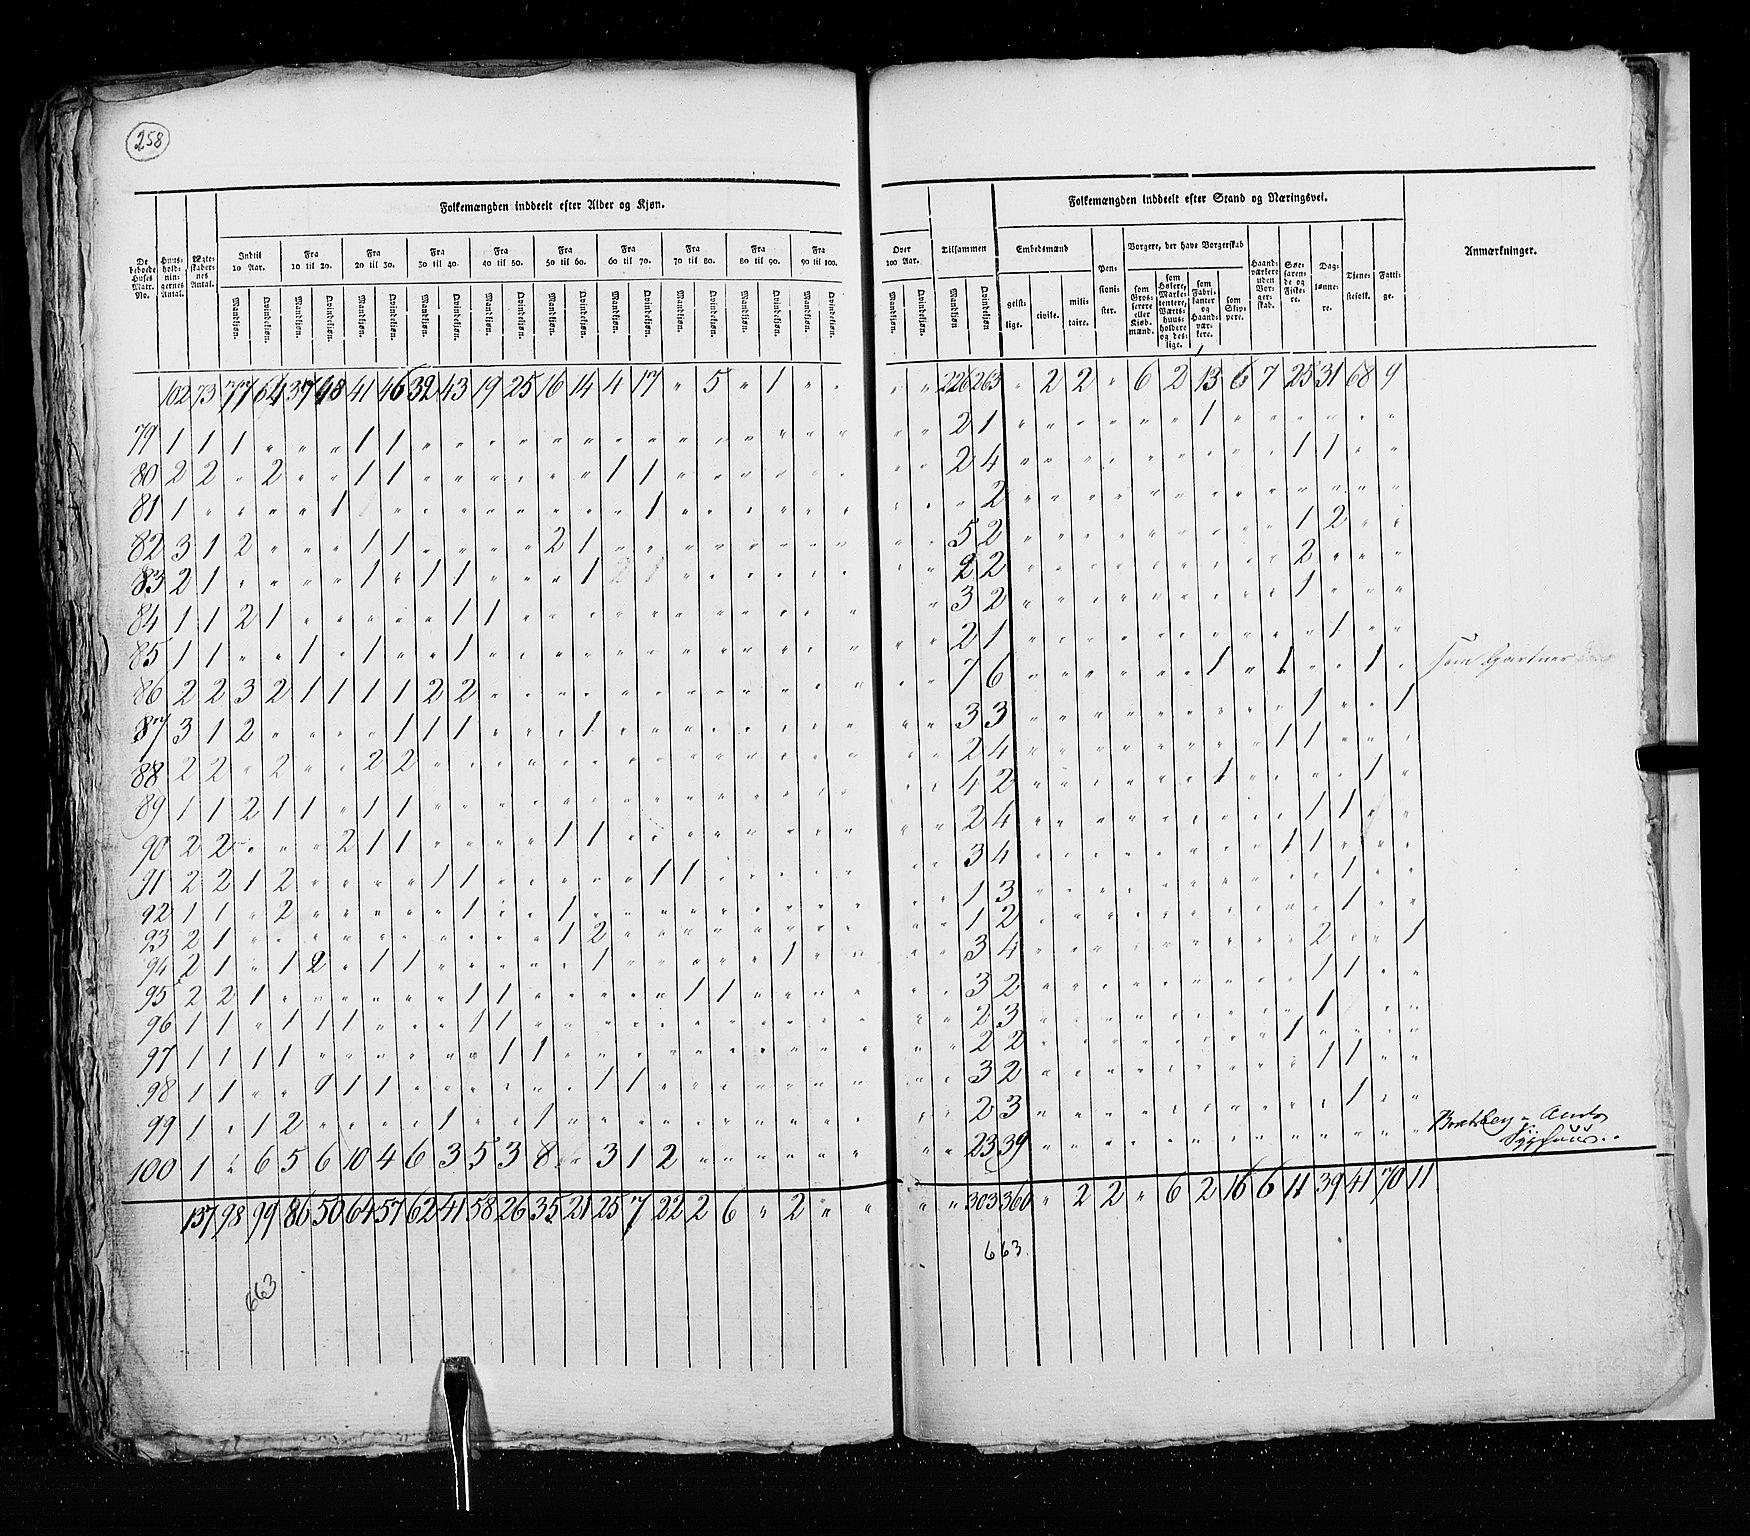 258
Folkemængden inddeelt efter Alder og Kjøn.
Folkemængden inddeelt efter Stand og Næringsvei.
De beboede Huses Matr. No.
Huus-holdningernes Antal.
Ægteskabernes Antal.
Indtil 10 Aar.
Fra 10 til 20.
Fra 20 til 30.
Fra 30 til 40.
Fra 40 til 50.
Fra 50 til 60.
Fra 60 til 70.
Fra 70 til 80.
Fra 80 til 90.
Fra 90 til 100.
Over 100 Aar.
Tilsammen
Embedsmænd
Pensionister.
Borgere, der have Borgerskab
Haandværkere uden Borgerskab.
Søefarende og Fiskere.
Daglønnere.
Tjenestefolk.
Fattige.
Anmærkninger.
Mandkjøn. Qvindekjøn. Mandkjøn. Qvindekjøn. Mandkjøn. Qvindekjøn. Mandkjøn. Qvindekjøn. Mandkjøn. Qvindekjøn. Mandkjøn. Qvindekjøn. Mandkjøn. Qvindekjøn. Mandkjøn. Qvindekjøn. Mandkjøn. Qvindekjøn. Mandkjøn. Qvindekjøn. Mandkjøn. Qvindekjøn. Mandkjøn Qvindekjøn
geistlige. civile. militaire.
som Grosserere eller Kjøbmænd.
som Høkere, Marketentere, Værtshuusholdere og deslige.
som Fabrikanter og Haandværkere.
som Skippere.
102 73 77 64 37 48 41 46 32 43 19 25 16 14 4 17 " 5 " 1 " " " " 226 263 " 2 2 " 6 2 13 6 7 25 31 68 9
79 1 1 1 " " " 1 1 " " " " " " " " " " " " " " " " 2 1 " " " " " " 1 " " " " " "
80 2 2 " 2 " " 1 1 " " " " " " 1 1 " " " " " " " " 2 4 " " " " " " " " " 1 1 " "
81 1 " " " " 1 " " " " " " " " " 1 " " " " " " " " " 2 " " " " " " " " " " " " "
82 3 1 2 " " " 1 1 " " " " 2 1 " " " " " " " " " " 5 2 " " " " " " " " " 1 2 " "
83 2 1 " " " " 1 " 1 1 " " " 1 " " " " " " " " " " 2 2 " " " " " " " " " 2 " " "
84 1 1 2 1 " " " " " 1 1 " " " " " " " " " " " " " 3 2 " " " " " " " " " 1 " " "
85 1 1 " " 1 " 1 " " 1 " " " " " " " " " " " " " " 2 1 " " " " " " " " " " 1 " "
86 2 2 3 2 1 1 1 1 2 2 " " " " " " " " " " " " " " 7 6 " " " " " " 1 " 1 " " 1 " som Gartner
87 3 1 2 " " " " 1 1 1 " " " 1 " " " " " " " " " " 3 3 " " " " " " " " " 1 " " 1
88 2 2 " 2 " " 2 2 " " " " " " " " " " " " " " " " 2 4 " " " " " " " " 1 1 " " "
89 1 1 2 1 1 " 1 1 " " " " " " " " " " " " " " " " 4 2 " " " " " " 1 " " " " 1 "
90 2 2 " " " 2 1 1 " " " " 1 1 " " " " " " " " " " 2 4 " " " " " " " " " 1 1 " "
91 2 2 1 2 " " " " 1 1 " " " " " 1 1 " " " " " " " 3 4 " " " " " " " " 1 1 " " "
92 1 1 " 2 " " " " " 1 " " 1 " " " " " " " " " " " 1 3 " " " " " " " " " " 1 " "
93 2 1 " " " " " " " " " " 1 2 " " " " " " " " " " 1 2 " " " " " " " " " " 1 " "
94 2 1 " 1 2 " 1 1 " " " " " 1 " " " " " 1 " " " " 3 4 " " " " " " " " " 2 " " 1
95 2 2 1 " " " " " " 1 1 " " " " " 1 1 " " " " " " 3 2 " " " " " " " " " 1 1 " "
96 1 1 " 1 1 1 " " " 1 1 " " " " " " " " " " " " " 2 3 " " " " " " " " " 1 " " "
97 1 1 1 1 " " " " " " 1 1 " " " " " " " " " " " " 2 2 " " " " " " " " 1 " " " "
98 1 1 " " 1 1 1 " " " " " " " 1 1 " " " " " " " " 3 2 " " " " " " " " " 1 1 " "
99 1 " 1 2 " " " " 1 " " 1 " " " " " " " " " " " " 2 3 " " " " " " " " " " 1 " "
100 1 " 6 5 6 10 4 6 3 5 3 8 " 3 1 2 " " " " " " " " 23 39 " " " " " " " " " " " " " Bratsberg Amts Sygehuus
137 98 99 86 50 64 57 62 41 58 26 35 21 25 7 22 2 6 " 2 " " " " 303 360 " 2 2 " 6 2 16 6 11 39 41 70 11
663.
663